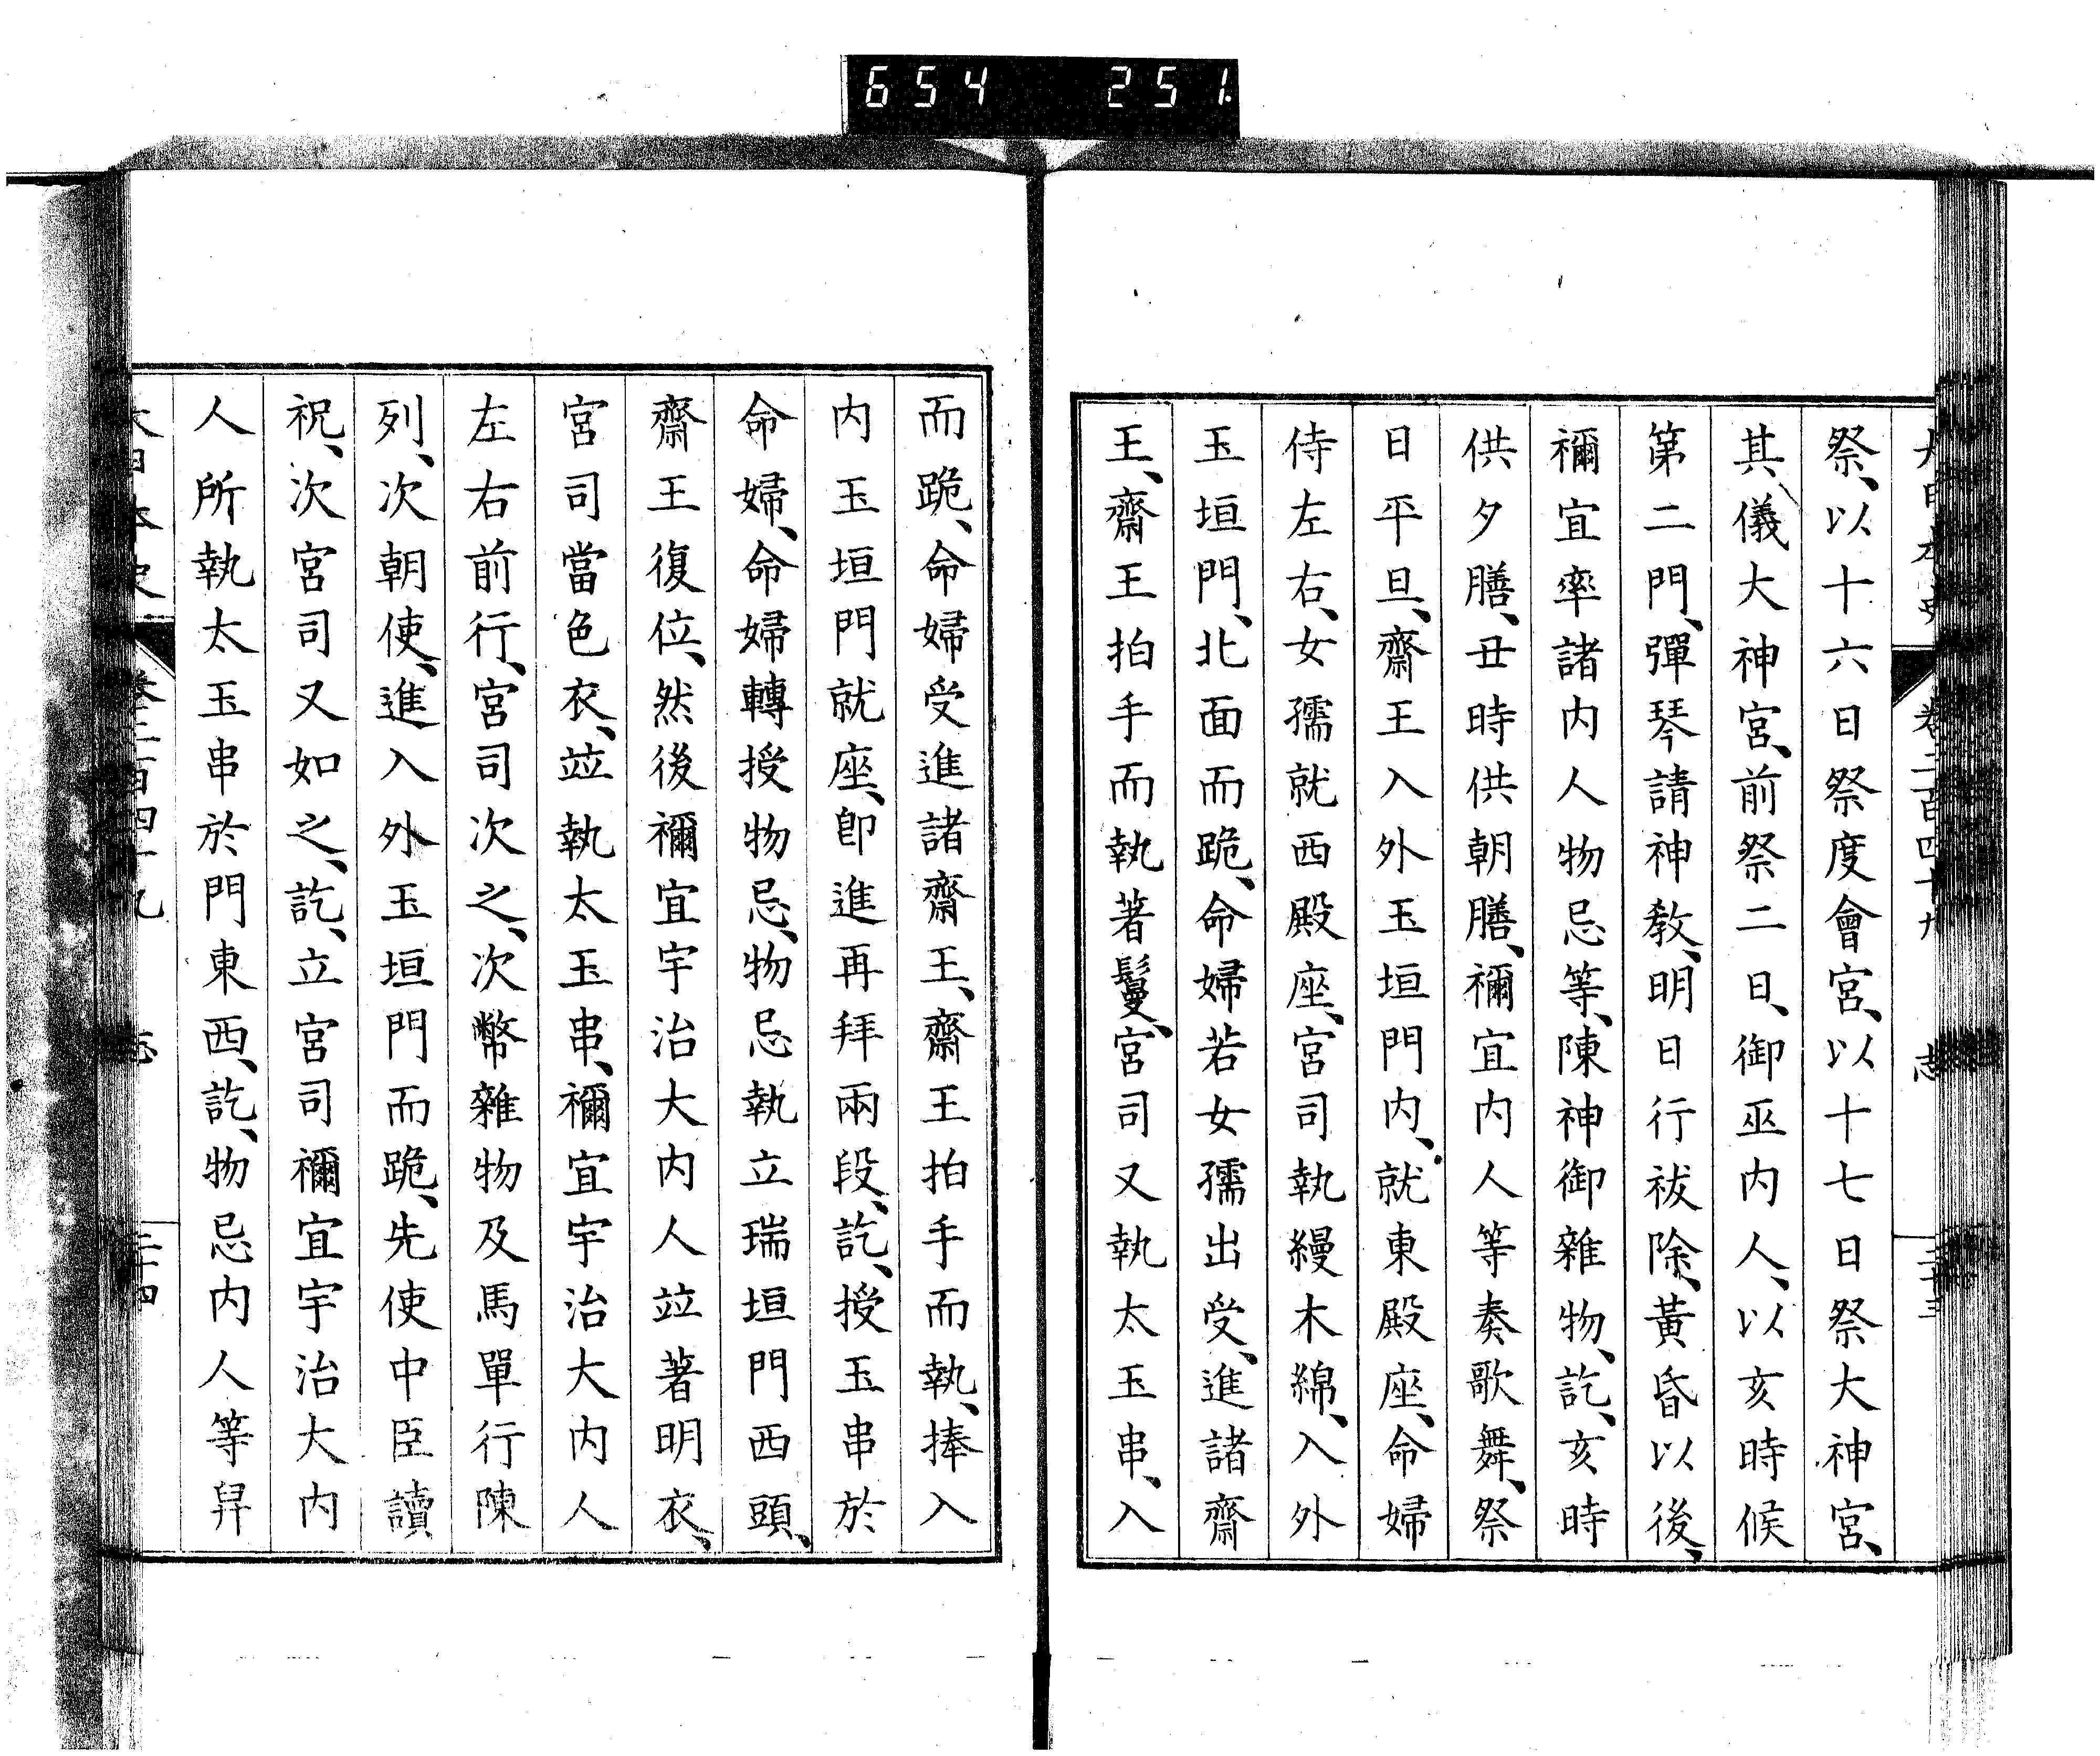 654 251
大日本史 卷二百四十九 志 二十三
祭、以十六日祭度會宮、以十七日祭大神宮、
其儀大神宮、前祭二日、御巫内人、以亥時候
第二門、彈琴請神教、明日行祓除、黃昏以後、
禰宜率諸内人物忌等、陳神御雜物、訖、亥時
供夕膳、丑時供朝膳、禰宜内人等奏歌舞、祭
日平旦、齋王入外玉垣門内、就東殿座、命婦
侍左右、女孺就西殿座、宮司執縵木綿、入外
玉垣門、北面而跪、命婦若女孺出受、進諸齋
王、齋王拍手而執著鬘、宮司又執太玉串、入
而跪、命婦受進諸齋王、齋王拍手而執、捧入
内玉垣門就座、卽進再拜兩段、訖、授玉串於
命婦、命婦轉授物忌、物忌執立瑞垣門西頭、
齋王復位、然後禰宜宇治大内人竝著明衣、
宮司當色衣、竝執太玉串、禰宜宇治大内人
左右前行、宮司次之、次幣雜物及馬單行陳
列、次朝使、進入外玉垣門而跪、先使中臣讀
祝、次宮司又如之、訖、立宮司禰宜宇治大内
人所執太玉串於門東西、訖、物忌内人等舁
大日本史 卷二百四十九 志 二十四